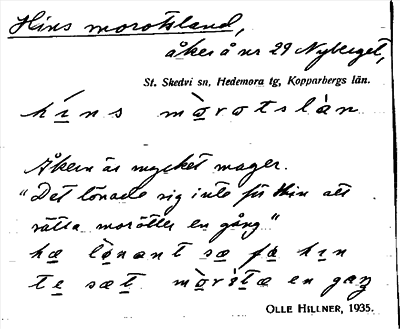 Hins morotsland,
åker å nr 29 Nyberget,
St. Skedvi sn, Hedemora tg, Kopparbergs län.
híns mòrotslàn
Åkern är mycket mager.
"Det lönade sig inte för Hin att
sätta morötter en gång"
hæ lònant sæ fa hın
te sæt mòròtæ en gaŋ
OLLE HILLNER, 1935.